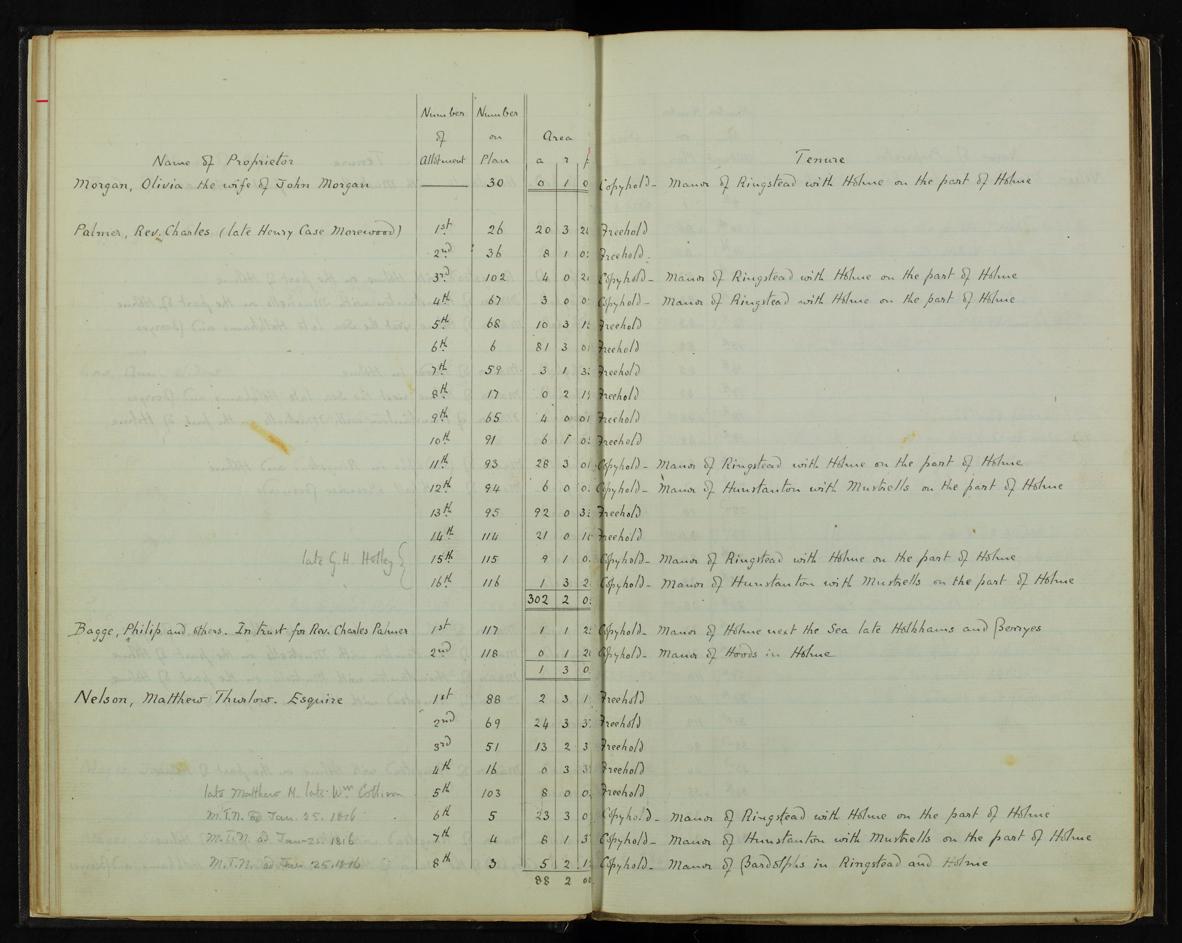 Number Number
of on Area
Name of Proprietor Allotment Plan a r p Tenure
Morgan, Olivia the wife of John Morgan 30 0 1 0 Copyhold - Manor of Ringstead with Holme on the part of Holme
Palmer, Rev. Charles (late Henry Case Morewood) 1st 26 20 3 Freehold
2nd 36 8 1 Freehold
3rd 102 4 0 Copyhold - Manor of Ringstead with Holme on the part of Holme
4th 67 3 0 Copyhold - Manor of Ringstead with Holme on the part of Holme
5th 68 10 3 Freehold
6th 6 81 3 Freehold
7th 59 3 1 Freehold
8th 17 0 2 Freehold
9th 65 4 0 Freehold
10th 91 6 1 Freehold
11th 93 28 3 Copyhold - Manor of Ringstead with Holme on the part of Holme
12th 94 6 0 Copyhold - Manor of Hunstanton with Mustrells on the part of Holme
13th 95 92 0 Freehold
14th 114 21 0 Freehold
late G. H. Holley 15th 115 9 1 Copyhold - Manor of Ringstead with Holme on the part of Holme
16th 116 1 3 Copyhold - Manor of Hunstanton with Mustrells on the part of Holme
302 2
Bagge, Philip and others. In trust for Rev. Charles Palmer 1st 117 1 1 Copyhold - Manor of Holme next the Sea late Holkhams and Berryes
2nd 118 0 1 Copyhold - Manor of Hoods in Holme
1 3
Nelson, Matthew Thurlow. Esquire 1st 88 2 3 Freehold
2nd 69 24 3 Freehold
3rd 51 13 2 Freehold
4th 16 0 3 Freehold
late Matthew N. late Wm Collison 5th 103 8 0 Freehold
M.T.N. ad Jan. 25. 1816 6th 5 23 3 Copyhold - Manor of Ringstead with Holme on the part of Holme
M.T.N. ad Jan 25. 1816 7th 4 8 1 Copyhold - Manor of Hunstanton with Mustrells on the part of Holme
M.T.N. ad Jan 25 1816 8th 3 5 2 Copyhold - Manor of Bardolphs in Ringstead and Holme
88 2